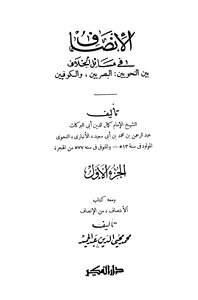 الإنصاف
في مسائل الخلاف
بين النحويين: البصريين، والكوفيين
تأليف
الشيخ الإمام كمال الدين أبي البركات
عبد الرحمن بن محمد بن أبي سعيد، الأنباري، النحوي
المولود في سنة ٥١٣ - والمتوفى في سنة ٥٧٧ من الهجرة
الجزء الأول
ومعه كتاب
الانتصاف، من الإنصاف
تأليف
محمد محيي الدين عبد الحميد
دار الفكر